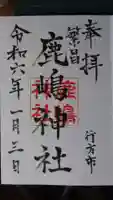 奉拝
繁昌
鹿嶋神社
行方市
令和六年一月三日